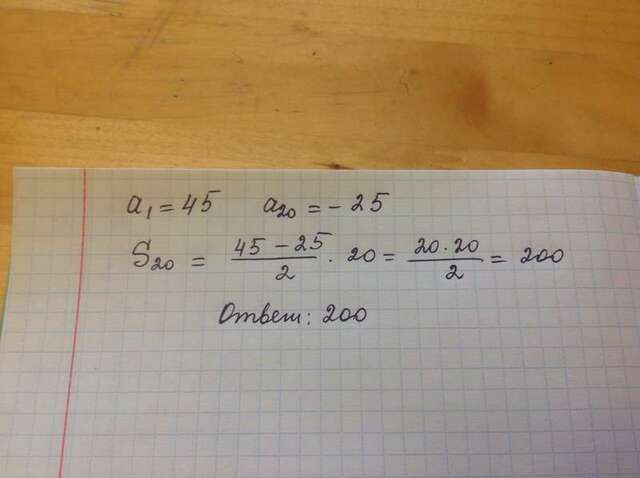 a₁ = 45 a₂₀ = - 25
S₂₀ = (45 - 25)/2 · 20 = (20 · 20)/2 = 200
Ответ: 200